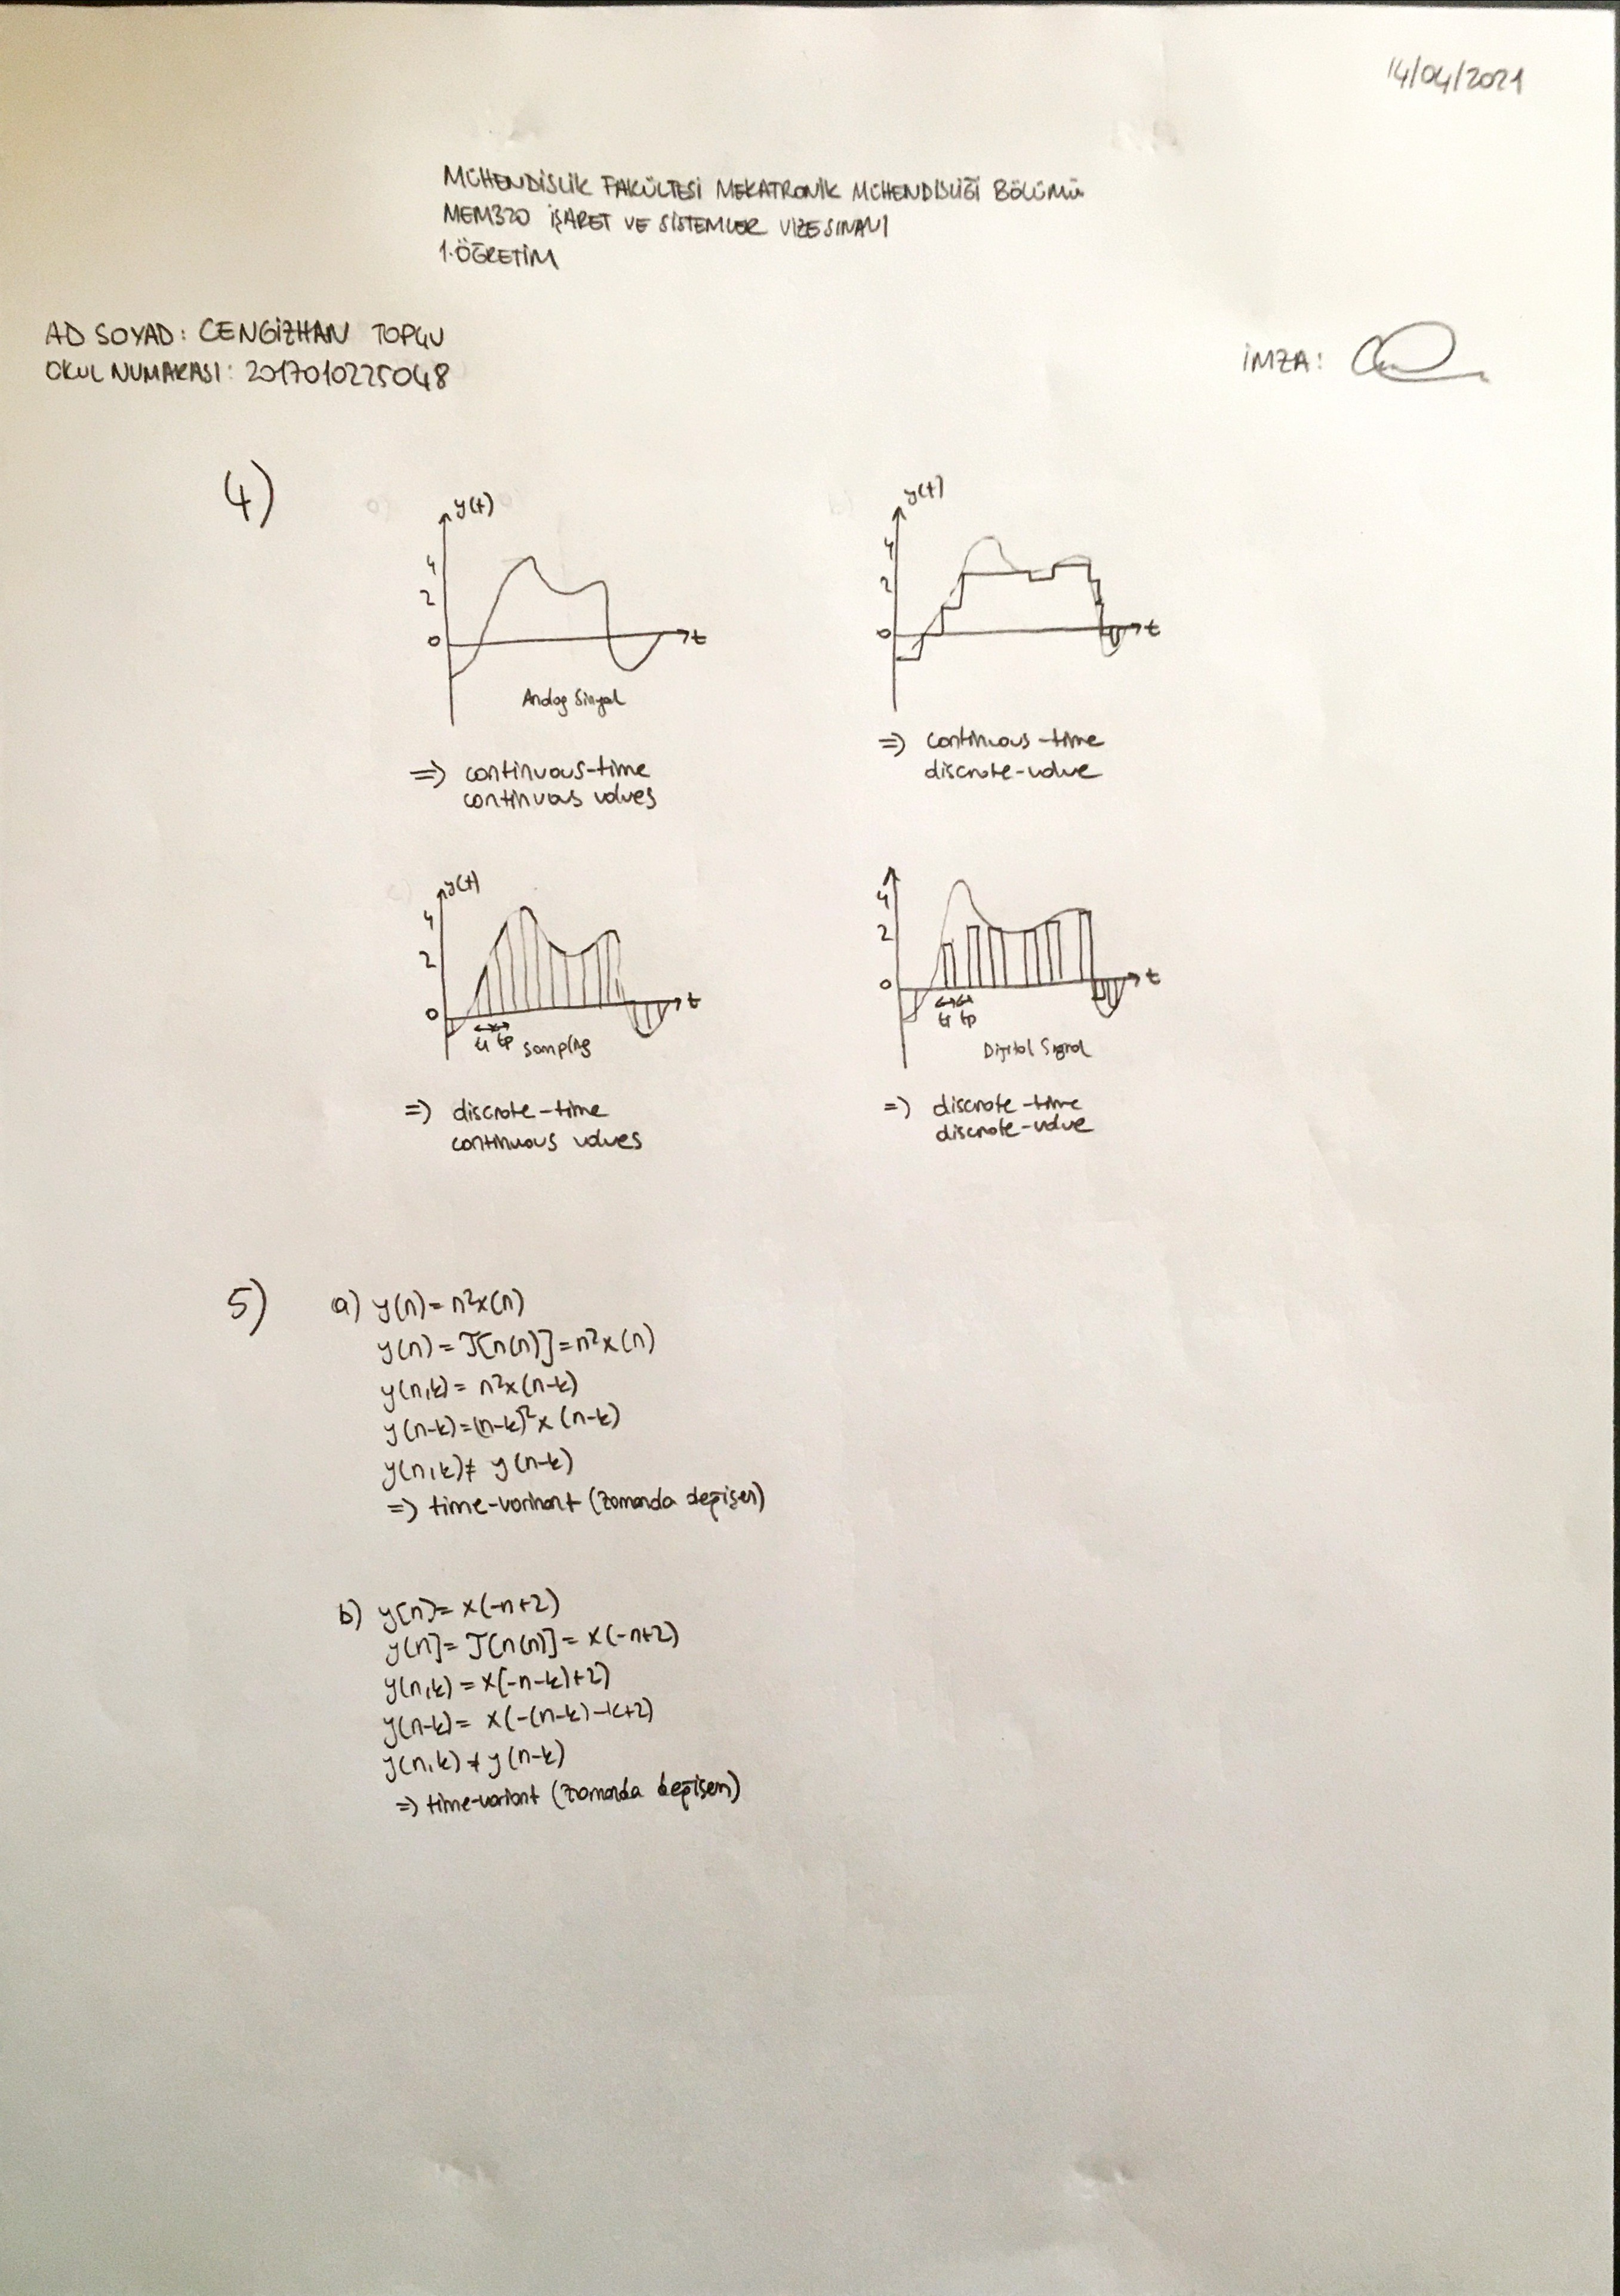 14/04/2021
MÜHENDİSLİK FAKÜLTESİ MEKATRONİK MÜHENDİSLİĞİ BÖLÜMÜ
MEM320 İŞARET VE SİSTEMLER VİZE SINAVI
1.ÖĞRETİM
AD SOYAD: CENGİZHAN TOPÇU
OKUL NUMARASI: 2017010225048
İMZA:
4)
y(t)
4
2
0
t
Analog Sinyal
=> continuous-time
continuous values
y(t)
4
2
0
t
=> continuous-time
discrete-value
y(t)
4
2
0
t
tp
Sampling
=> discrete-time
continuous values
4
2
0
t
tp
Dijital Signal
=> discrete-time
discrete-value
5)
a) y(n)= n²x(n)
y(n) = T[n(n)] = n²x(n)
y(n,k)= n²x(n-k)
y(n-k)=(n-k)²x(n-k)
y(n,k)≠ y(n-k)
=> time-varihant (zamanda değişen)
b) y[n]= x(-n+2)
y[n]= T[n(n)] = x(-n+2)
y(n,k) = x(-n-k)+2)
y(n-k)= x(-(n-k)-k+2)
y(n,k) ≠ y(n-k)
=> time-variant (zamanda değişen)